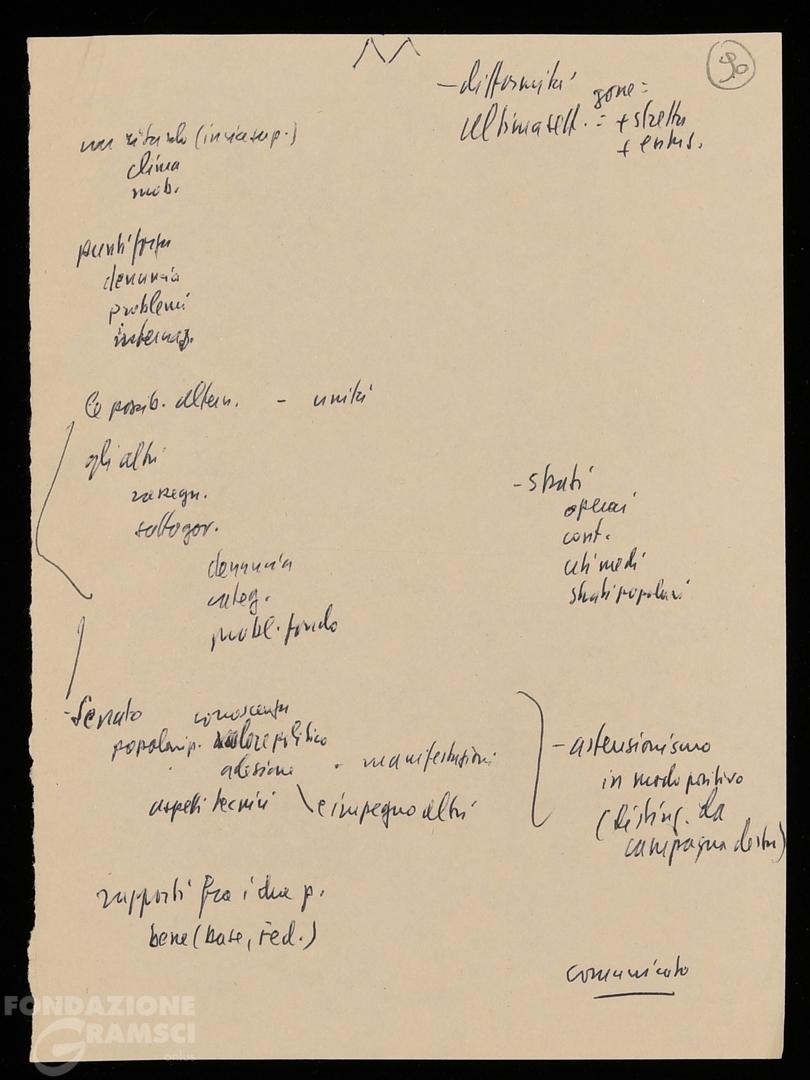 90
- difformità zone =
ultima sett. = + stretta
+ entus.
un ritardo (in via sup.)
clima
mob.
punti forza
denuncia
problemi
internaz.
le possib. altern. - unità
gli altri
rassegn.
sottogov.
denuncia
categ.
probl. fondo
- strati
operai
cont.
ceti medi
strati popolari
- Senato
conoscenza
popolarizz. valore politico
adesione - manifestazioni
aspetti tecnici e impegno altri
- astensionismo
in modo positivo
(disting. da
campagna destra)
rapporti fra i due p.
bene (base, fed.)
comunicato
FONDAZIONE
GRAMSCI
onlus